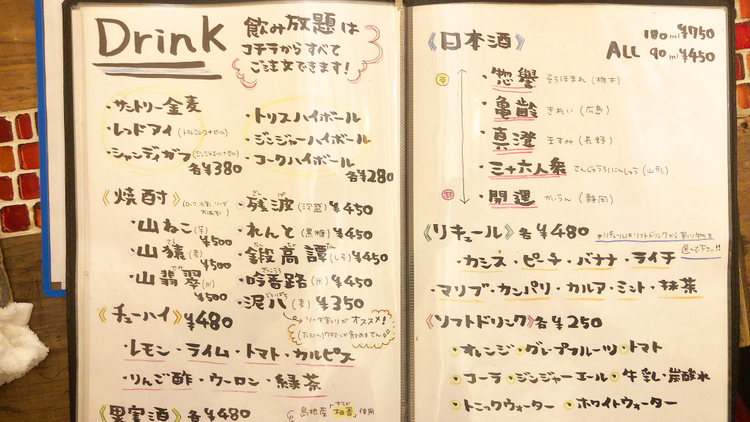 Drink
飲み放題は
コチラからすべて
ご注文できます!
・サントリー金麦
・レッドアイ
・シャンディガフ
各¥380
・トリスハイボール
・ジンジャーハイボール
・コークハイボール
各¥280
《焼酎》
・山ねこ(芋)
¥500
・山猿(麦)
¥500
・山翡翠(米)
¥500
・残波(泡盛) ¥450
・れんと(黒糖) ¥450
・鍛高譚(しそ) ¥450
・吟香露(米) ¥450
・泥八(麦) ¥350
ソーダ割りがオススメ!
《チューハイ》¥480
・レモン・ライム・トマト・カルピス
・りんご酢・ウーロン・緑茶
《果実酒》各¥480
島根産「柚香」使用
《日本酒》
180ml¥750
ALL 90ml¥450
辛
・惣譽 そうほまれ(栃木)
・亀齢 きれい(広島)
・真澄 ますみ(長野)
・三十六人衆 さんじゅうろくにんしゅう(山形)
・開運 かいうん(静岡)
《リキュール》各¥480
※リキュールはソフトドリンクから割り物を
選んで下さい!!
・カシス・ピーチ・バナナ・ライチ
・マリブ・カンパリ・カルア・ミント・抹茶
《ソフトドリンク》各¥250
・オレンジ・グレープフルーツ・トマト
・コーラ・ジンジャーエール・牛乳・炭酸水
・トニックウォーター・ホワイトウォーター